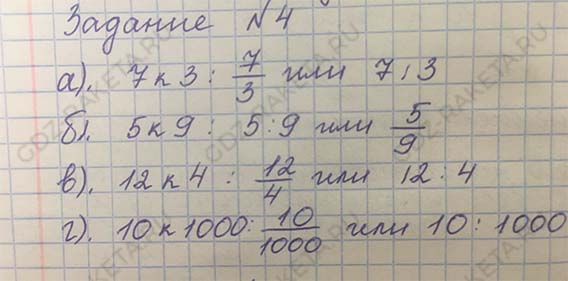 Задание №4
а). 7 к 3 : 7/3 или 7 : 3
б). 5 к 9 : 5 : 9 или 5/9
в). 12 к 4 : 12/4 или 12 : 4
г). 10 к 1000 : 10/1000 или 10 : 1000
GDZ-RAKETA.RU